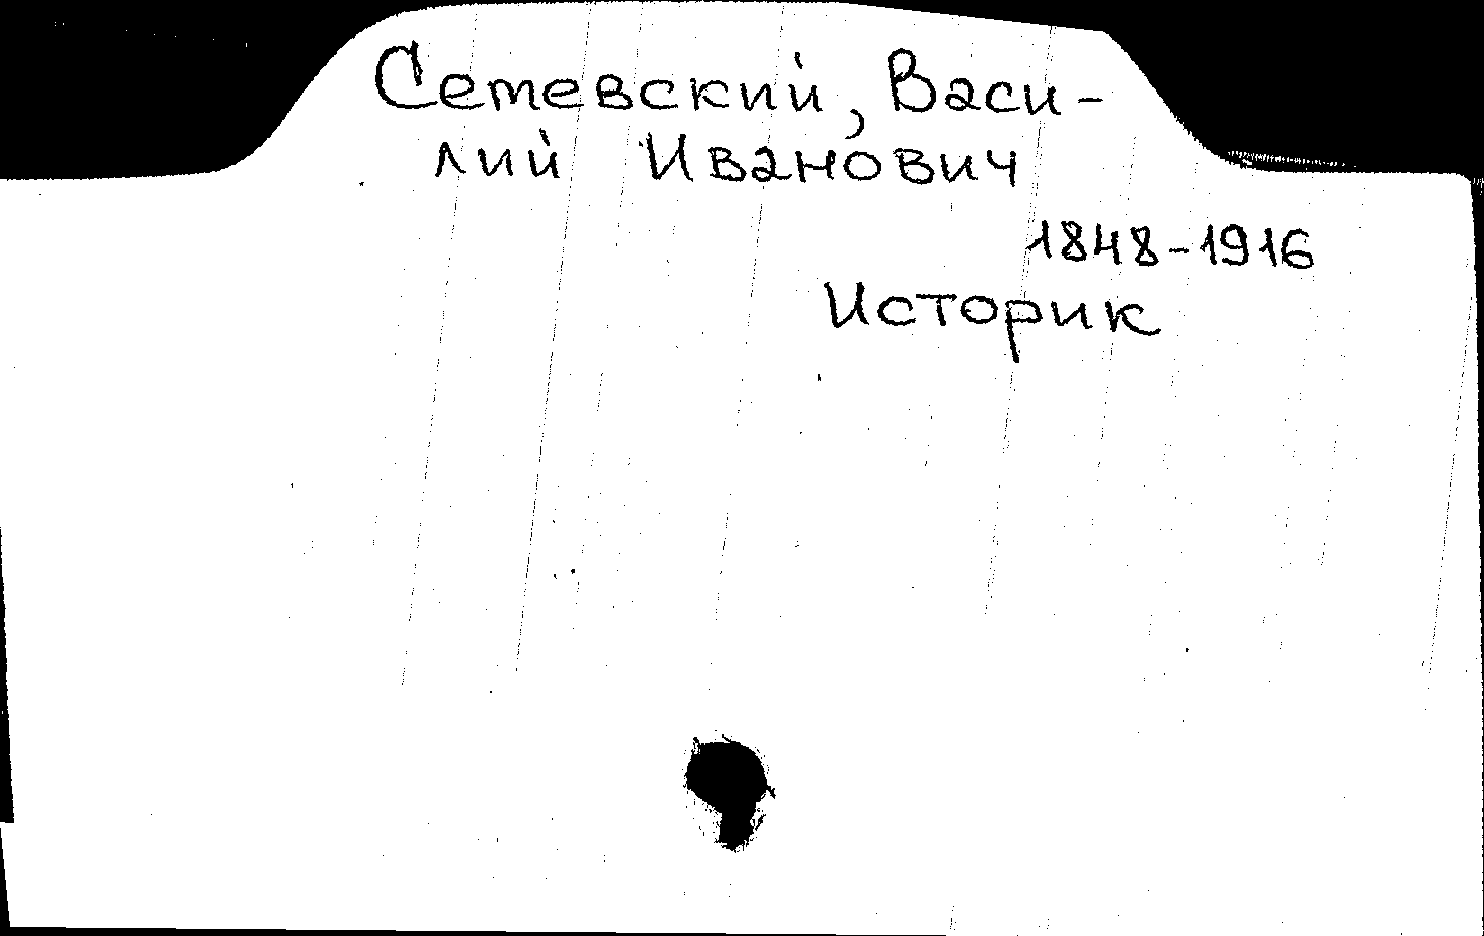 Семевский, Васи-
лий Иванович
1848-1916
Историк